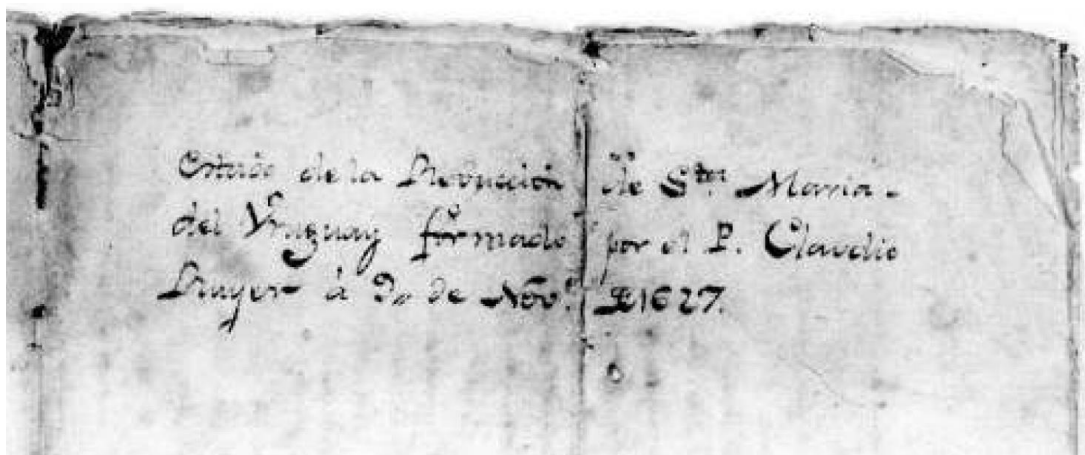 Estado de la Reduccion de Sta Maria
del Vruguay formado por el P. Claudio
Ruyer à 9 de Nov.e de 1627.